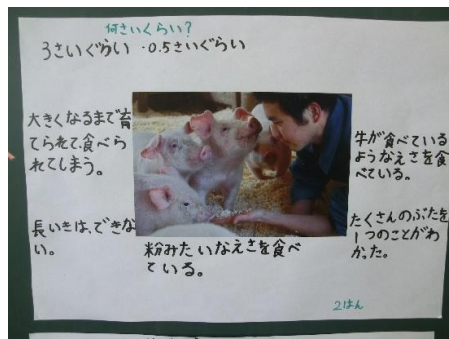 何さいくらい?
3さいぐらい ・0.5さいぐらい
大きくなるまで育
てられて、食べら
れてしまう。
長いきは、できな
い。
粉みたいなえさを食べ
ている。
牛が食べている
ようなえさを食
べている。
たくさんのぶたを
1つのことがわ
かった。
2はん